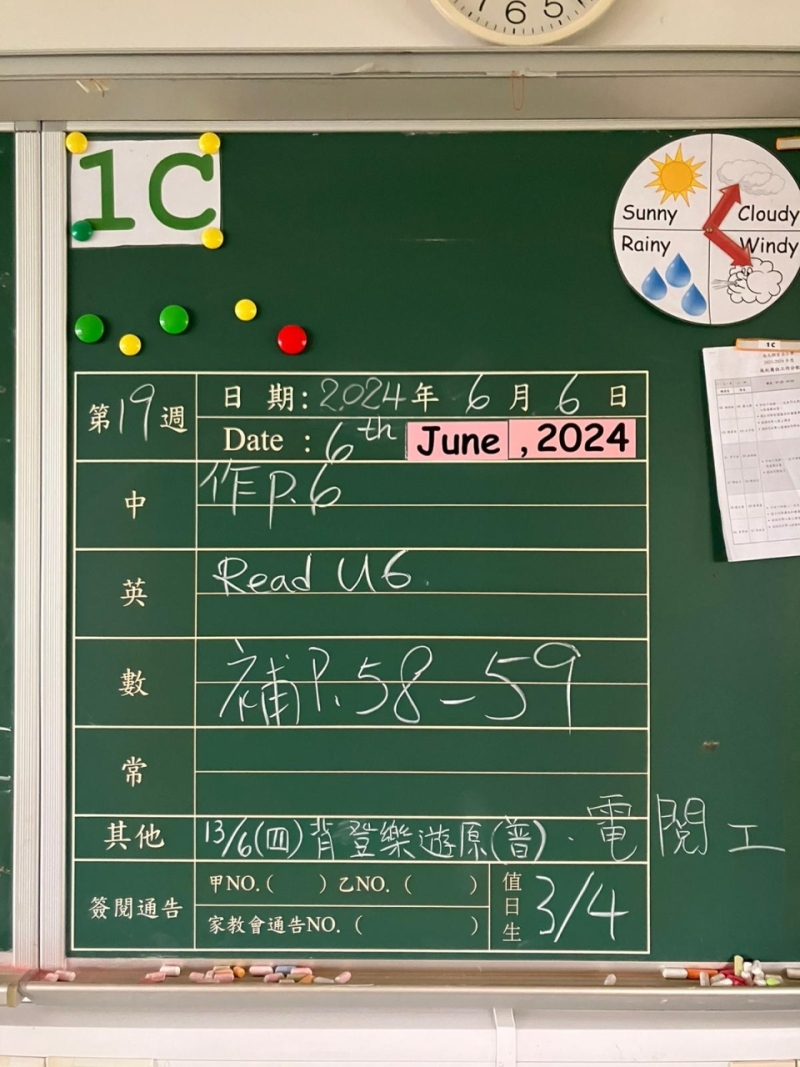 6 5
1C
Sunny Cloudy
Rainy Windy
1C
第19週
日 期: 2024年 6月 6日
Date : 6th June , 2024
中 作P.6
英 Read U6.
數 補P.58-59
常
其他 13/6(四)背登樂遊原(普)、電閱工
簽閱通告 甲NO.( ) 乙NO.( )
家教會通告NO. ( )
值日生 3/4